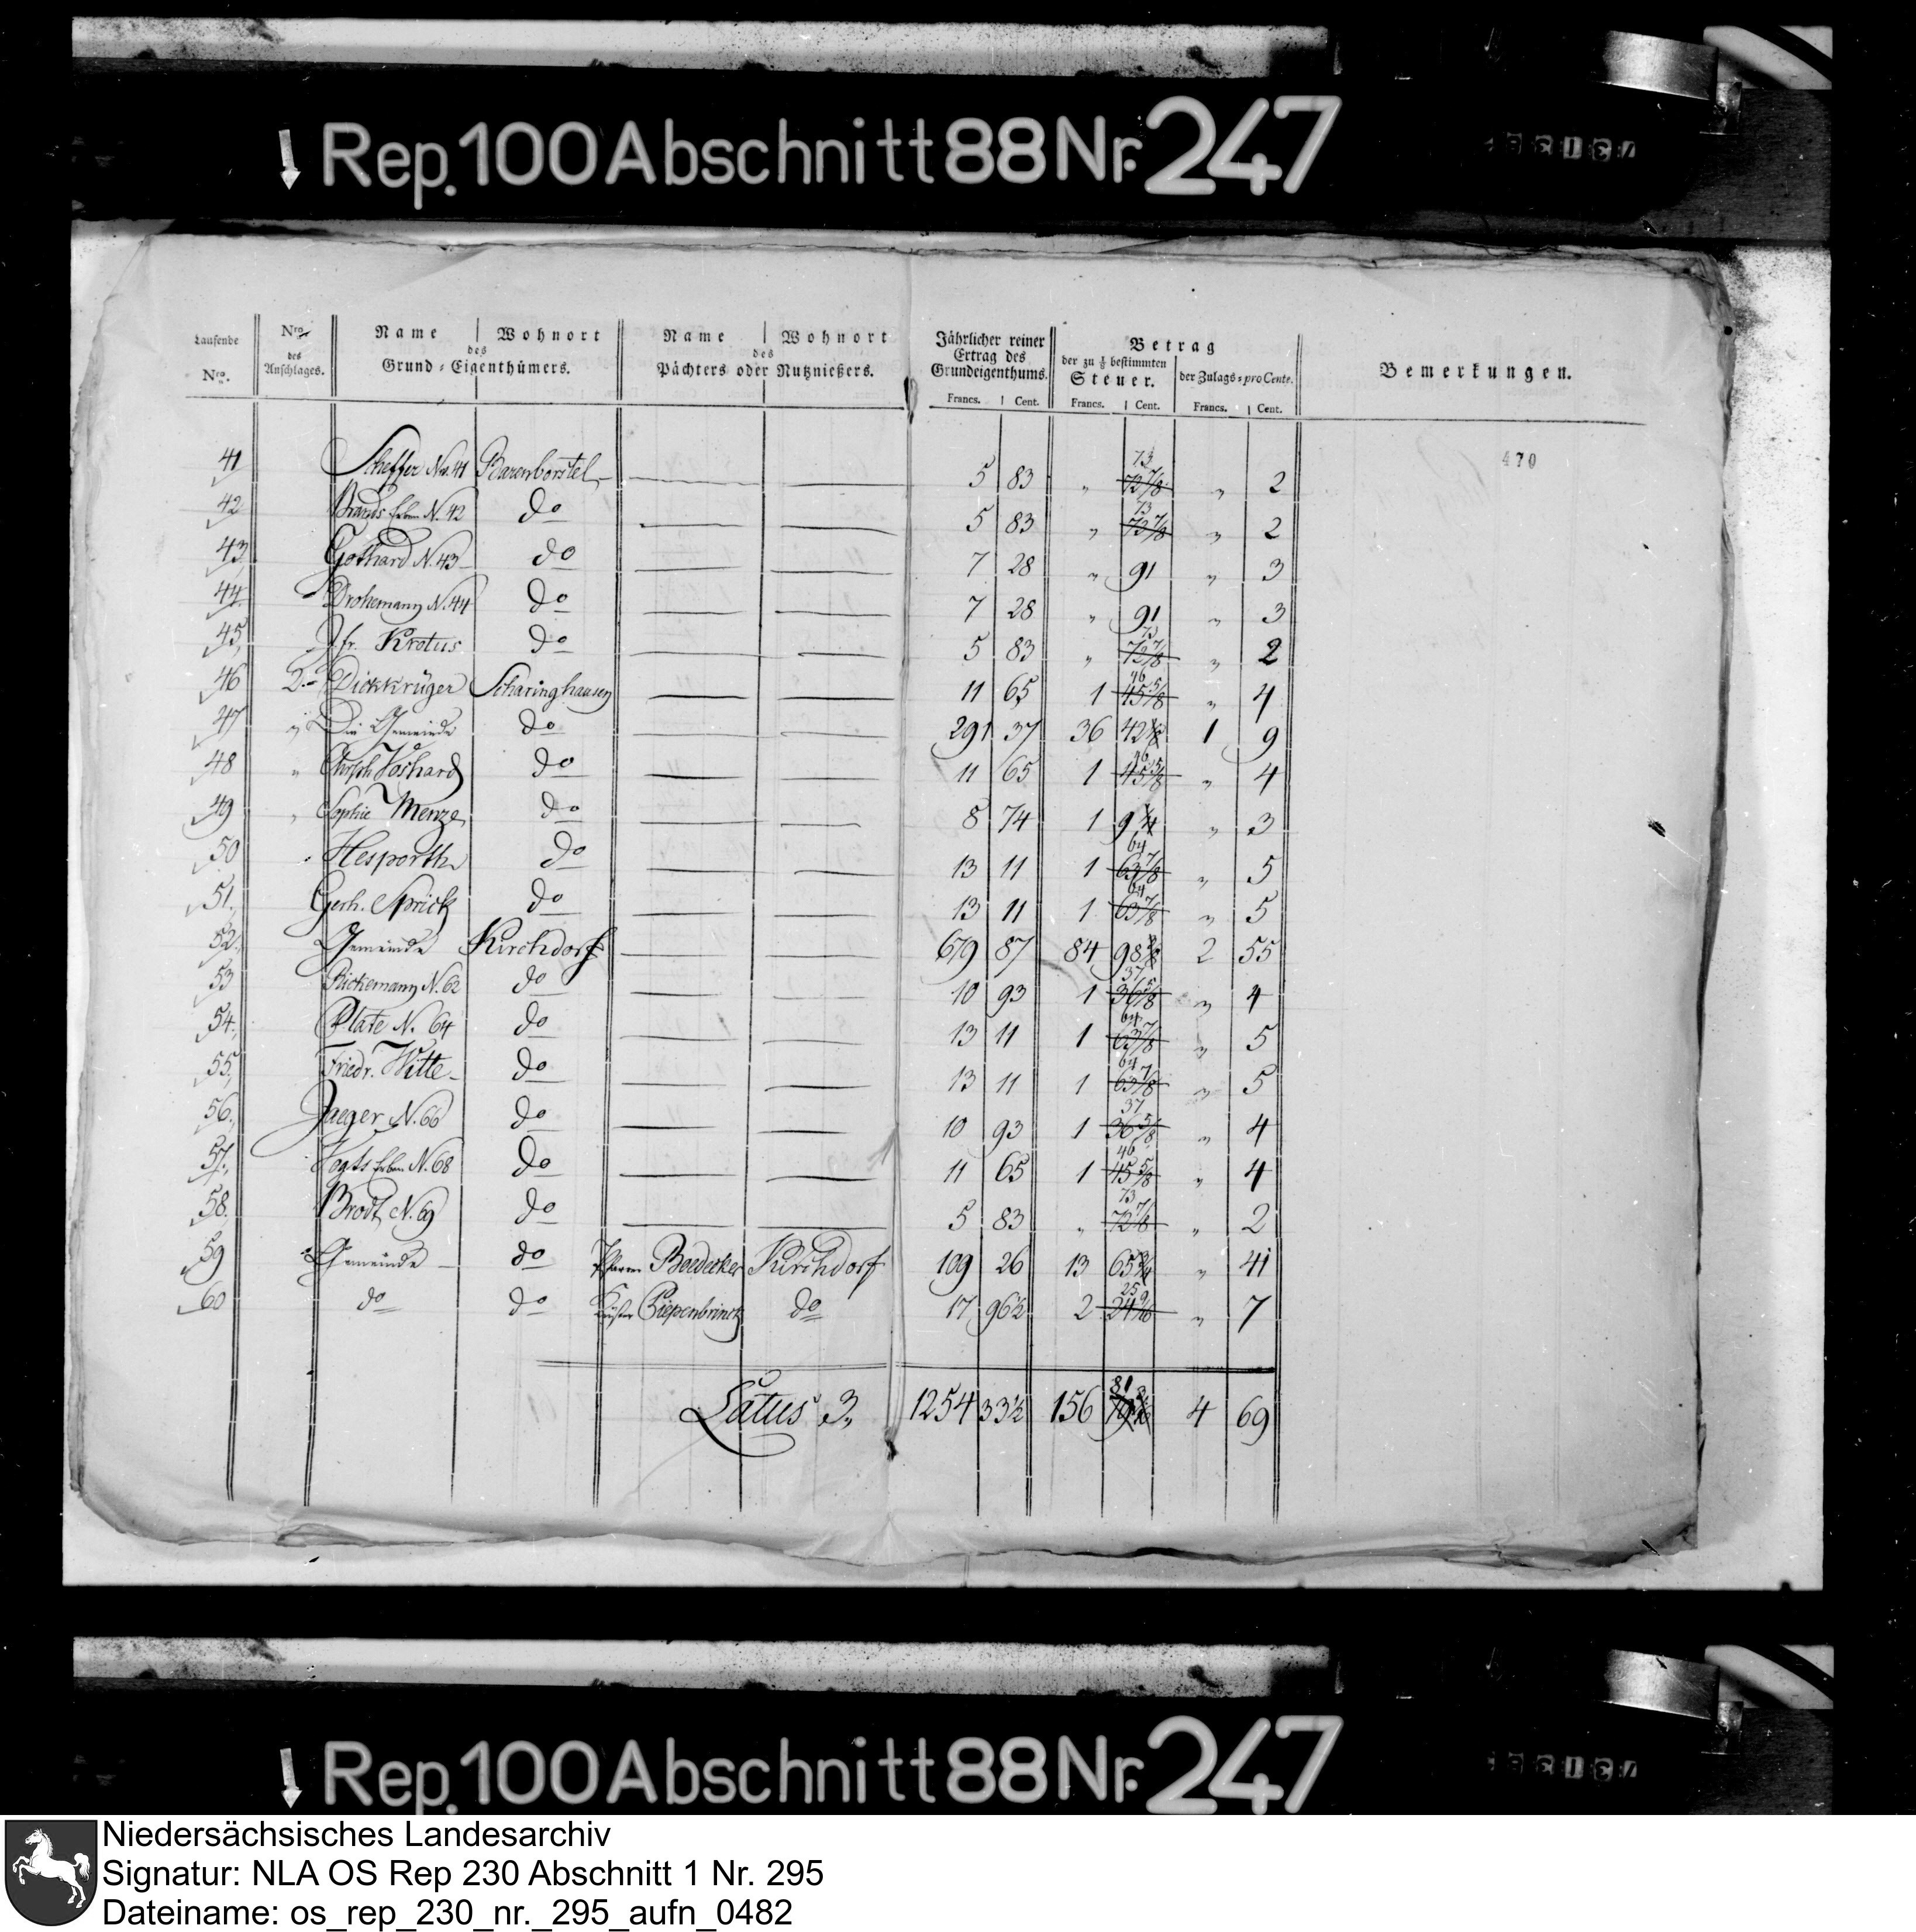 Rep. 100 Abschnitt 88 Nr. 247
Laufende Nro. | Nro. des Anschlages. | Name | Wohnort des Grund-Eigenthümers. | Name | Wohnort des Pächters oder Nutznießers. | Jährlicher reiner Ertrag des Grundeigenthums. Francs. Cent. | Betrag der zu 1/8 bestimmten Steuer. Francs. Cent. | der Zulags-pro Cente. Francs. Cent. | Bemerkungen.
470
41 Scheffer No. 41 Barenborstel 5 83 " 73 72 7/8 " 2
42 Brands Erben N. 42 do 5 83 " 73 72 7/8 " 2
43 Gothard N. 43 do 7 28 " 91 " 3
44. Drohemann N. 44 do 7 28 " 91 " 3
45, Jfr. Krotus do 5 83 " 73 72 7/8 " 2
46 2. Dickkrüger Scharinghausen 11 65 1 46 45 5/8 " 4
47 " Die Gemeinde do 291 37 36 42 1 9
48 " Voshard do 11 65 1 46 45 5/8 " 4
49 " Sophie Menze do 8 74 1 9 1/4 " 3
50 " Hesporth do 13 11 1 64 63 7/8 " 5
51. Gerh. Sprick do 13 11 1 64 63 7/8 " 5
52. Gemeinde Kirchdorf 679 87 84 98 2 55
53 Rickemann N. 62 do 10 93 1 37 36 5/8 " 4
54. Plate N. 64 do 13 11 1 64 63 7/8 " 5
55. Friedr. Witte do 13 11 1 64 63 7/8 " 5
56. Jaeger N. 66 do 10 93 1 37 36 5/8 " 4
57. Vogts Erben N. 68 do 11 65 1 46 45 5/8 " 4
58. Brodt N. 69 do 5 83 " 73 72 7/8 " 2
59 Gemeinde do Boedecker Kirchdorf 109 26 13 65 3/4 " 41
60 do do Küster Piepenbrinck do 17 96 1/2 2 25 24 " 7
Latus 3, 1254 33 1/2 156 81 4 69
Rep. 100 Abschnitt 88 Nr. 247
Niedersächsisches Landesarchiv
Signatur: NLA OS Rep 230 Abschnitt 1 Nr. 295
Dateiname: os_rep_230_nr._295_aufn_0482